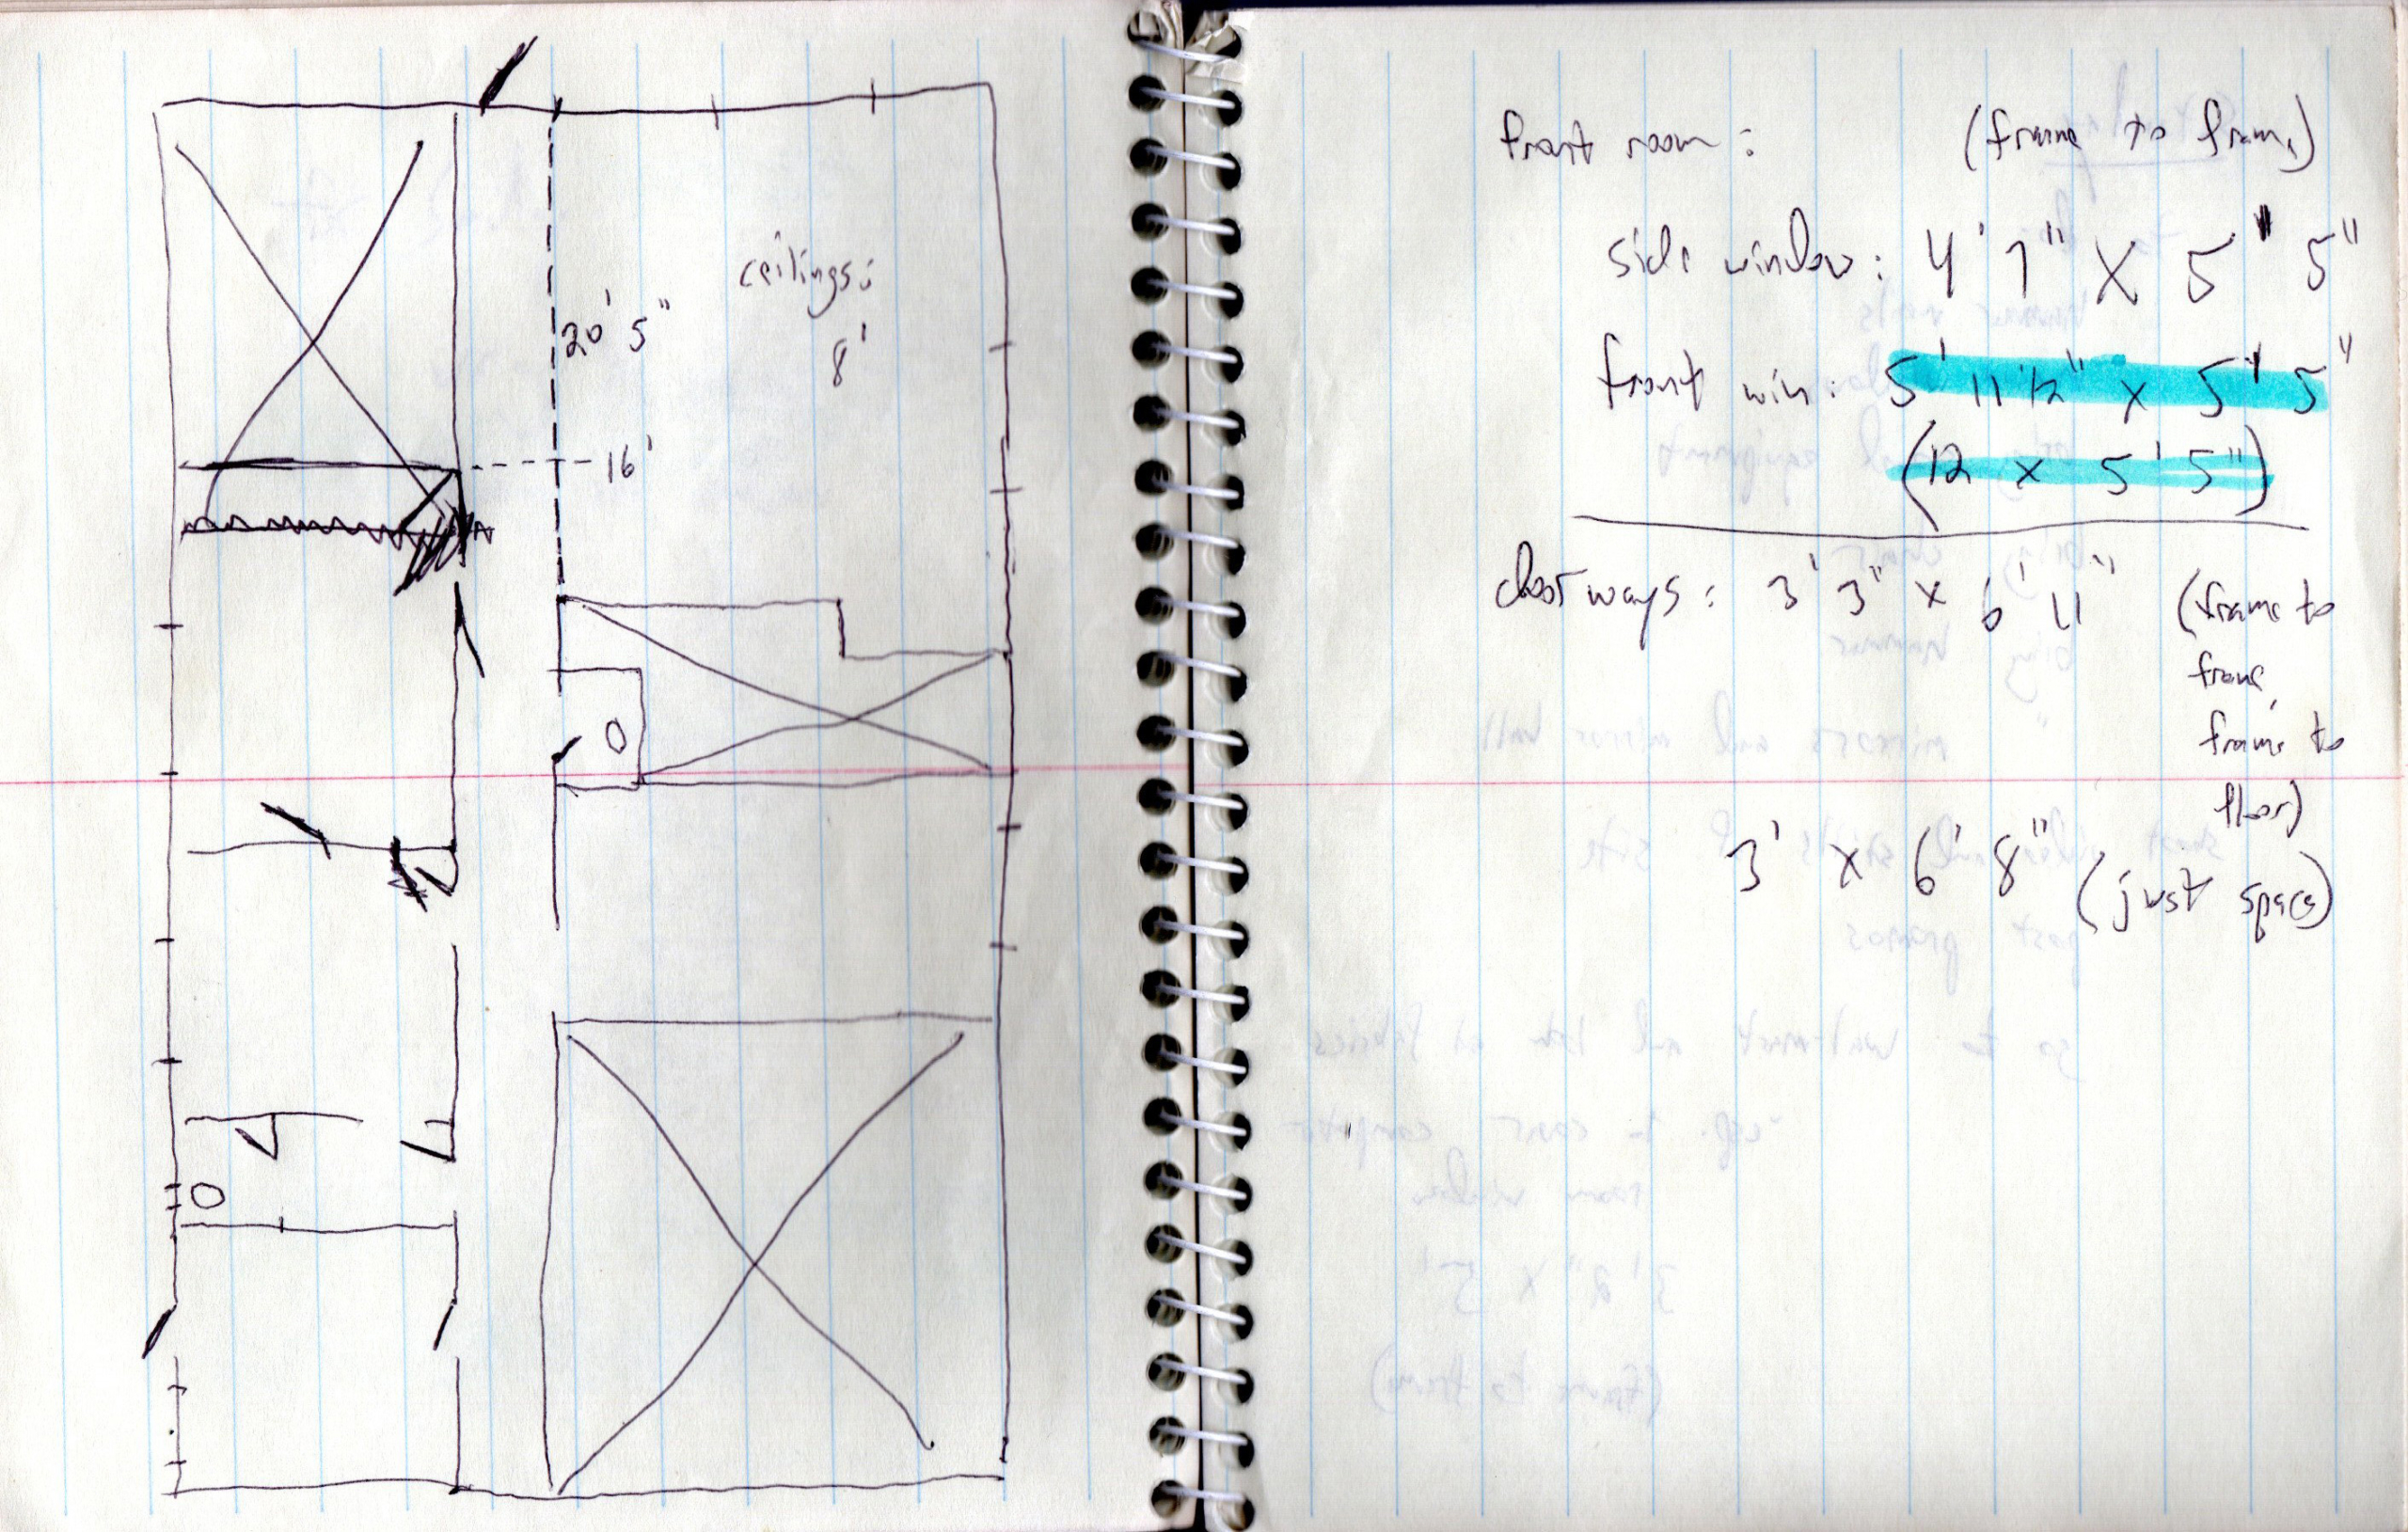 ceilings:
8'
20' 5"
16'
front room: (frame to frame)
side window: 4' 7" X 5' 5"
front win: 5' 11 1/2" x 5' 5"
(12 x 5' 5")
doorways: 3' 3" x 6' 11" (frame to
frame,
frame to
floor)
3' x 6' 8" (just space)